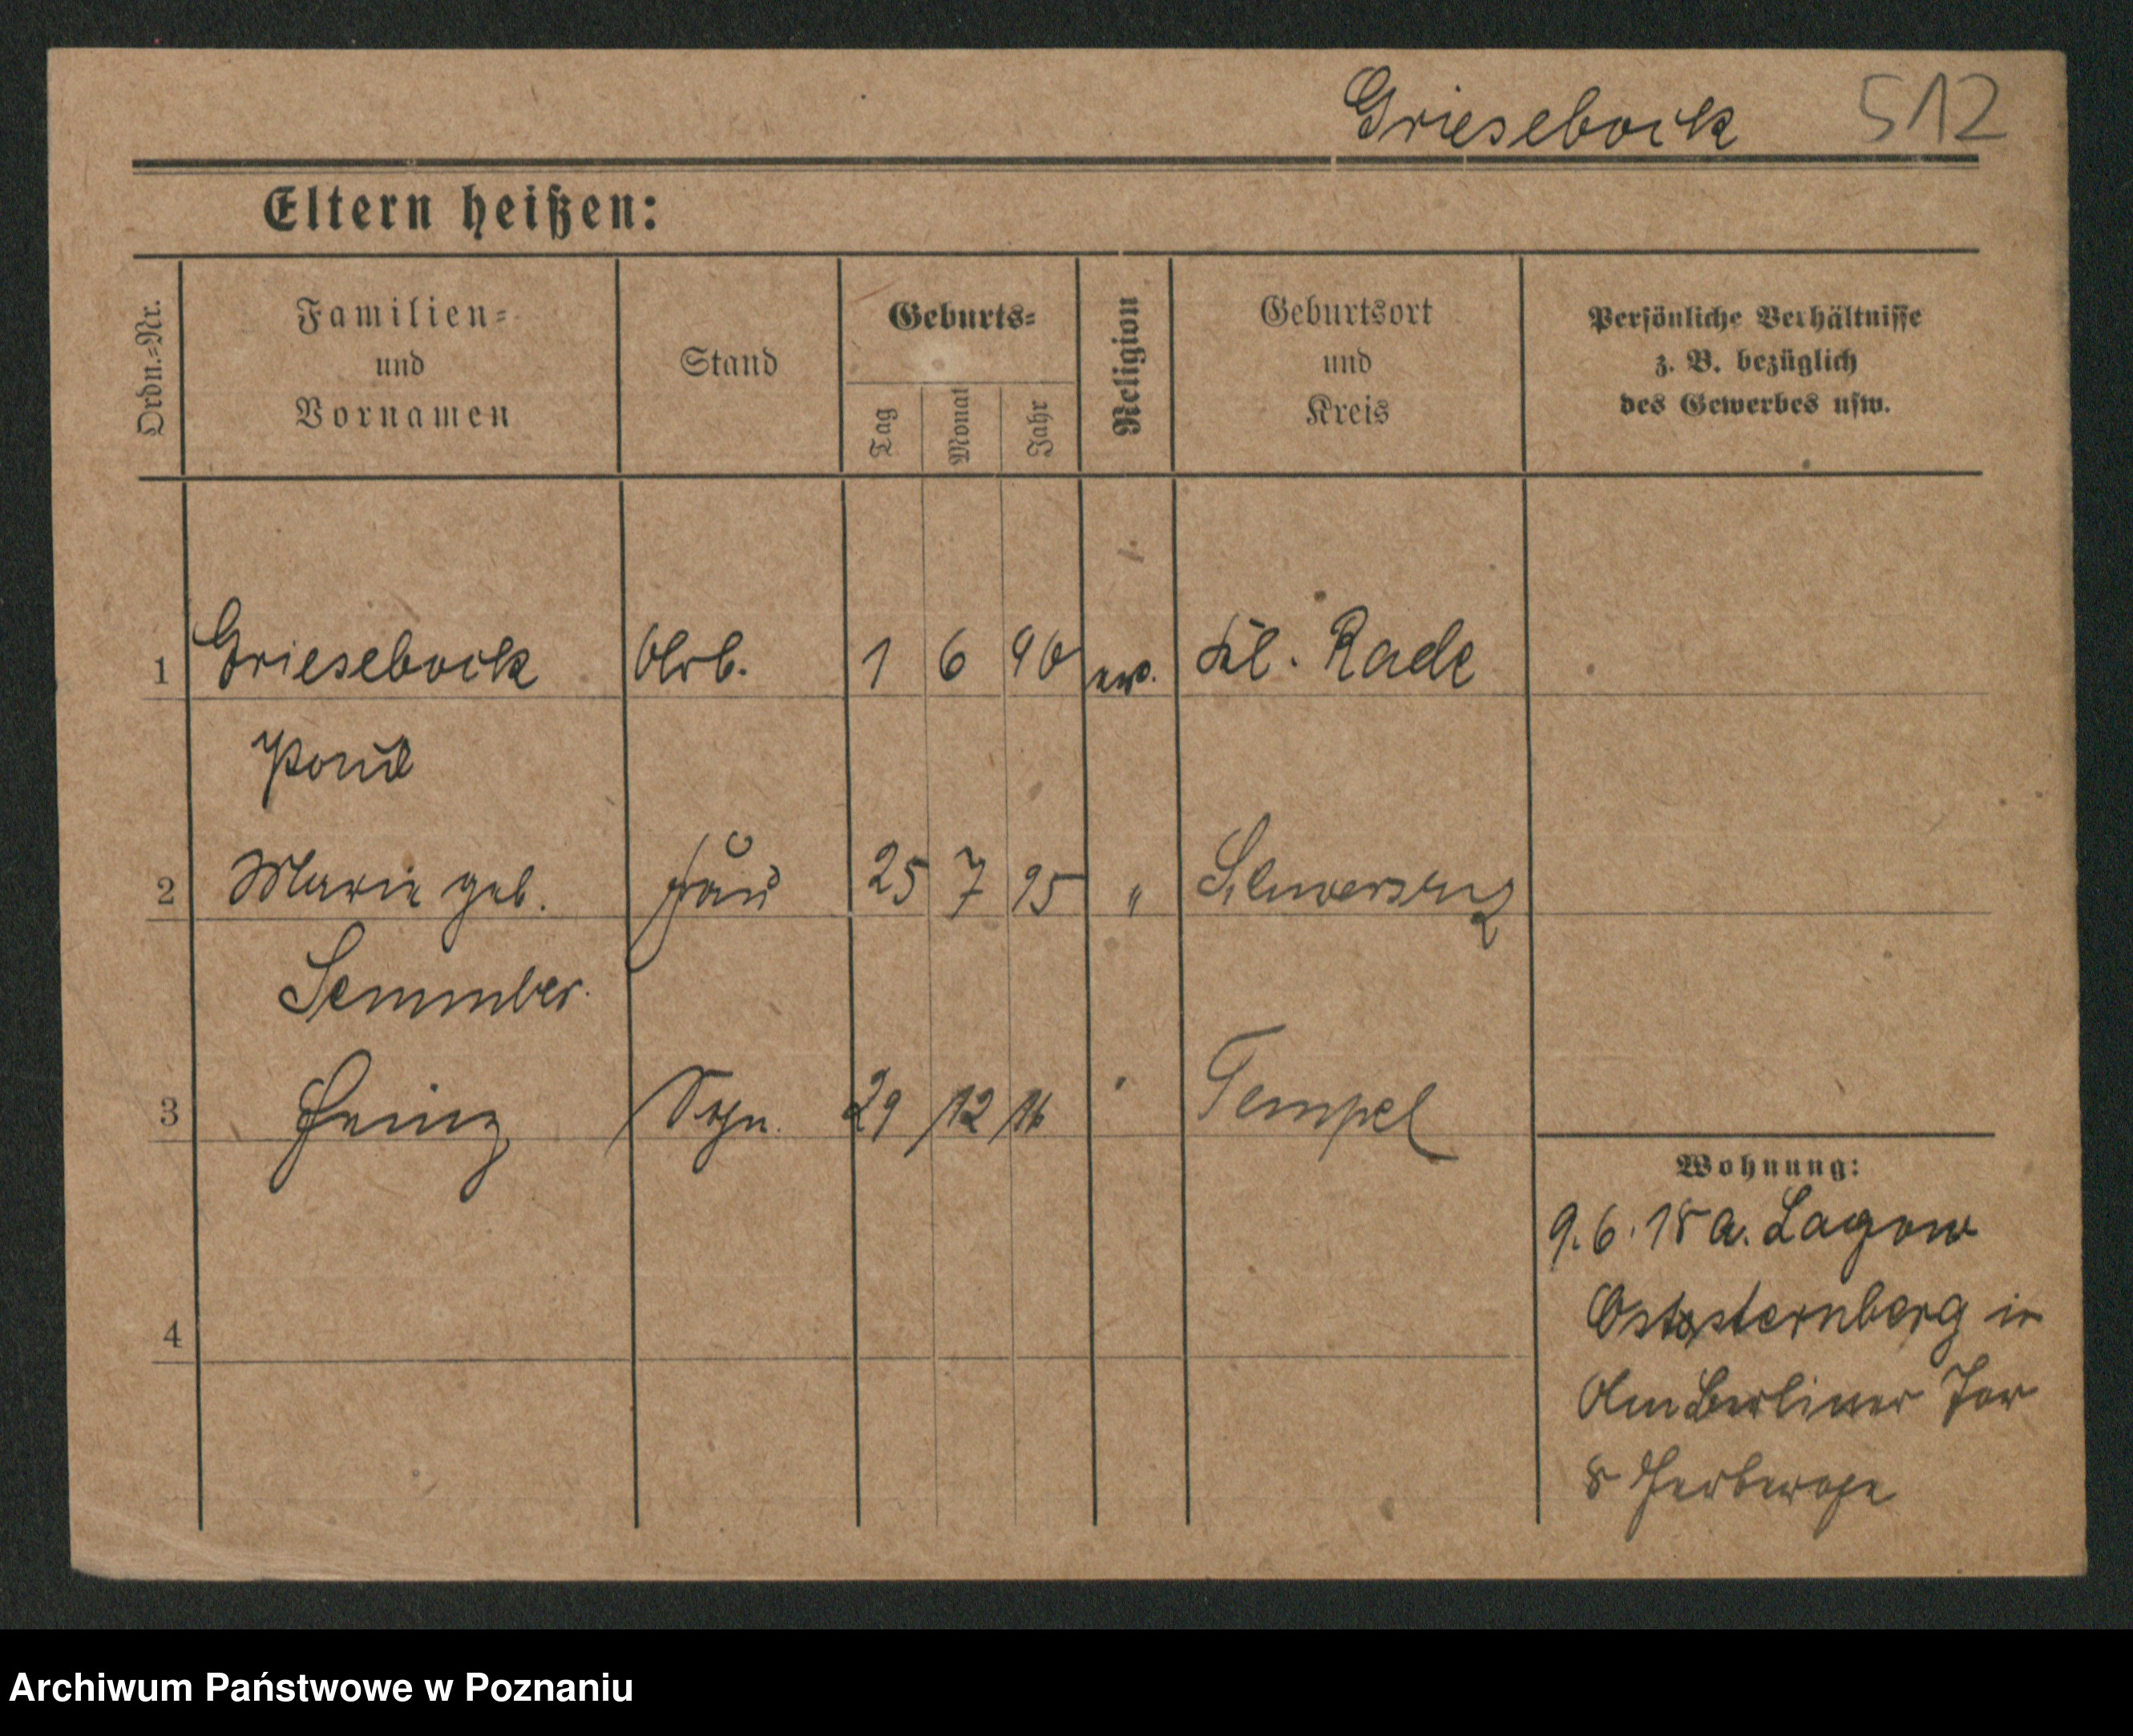 Griesebock 512
Eltern heißen:
Ordn.-Nr.
Familien-
und
Vornamen
Stand
Geburts-
Tag
Monat
Jahr
Religion
Geburtsort
und
Kreis
Persönliche Verhältnisse
z. B. bezüglich
des Gewerbes usw.
1 Griesebock Arb. 1 6 90 ev. Kl. Rade
Paul
2 Marie geb. Frau 25 7 95 " Schwersenz
3 Heinz Sohn. 29 12 16 " Tempel
Wohnung:
9.6.18 a. Lagow
Oststernberg in
Am Berliner Tor
8 Herberge
4
Archiwum Państwowe w Poznaniu